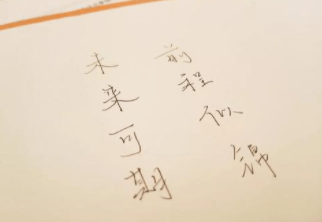 前程似锦
未来可期